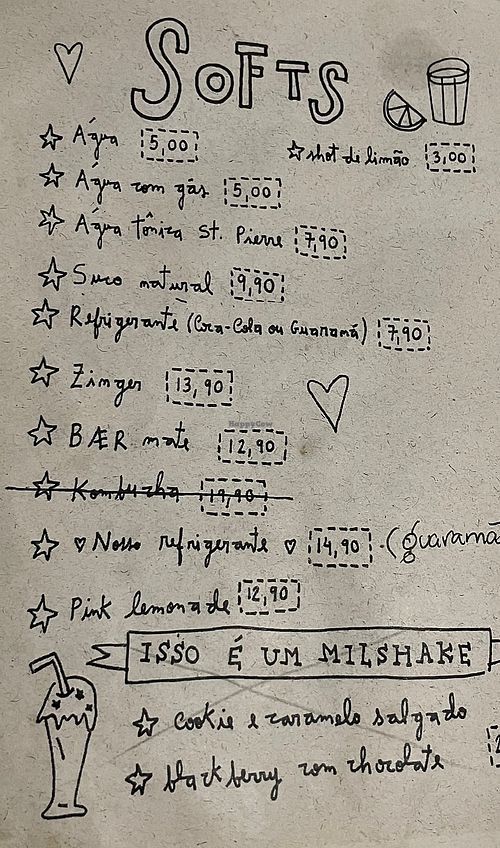 SOFTS
Água 5,00
shot de limão 3,00
Água com gás 5,00
Água tônica St. Pierre 7,90
Suco natural 9,90
Refrigerante (Coca-Cola ou Guaraná) 7,90
Zinger 13,90
HappyCow
BÆR mate 12,90
Kombucha 19,90
Nosso refrigerante 14,90 (guaraná
Pink lemonade 12,90
ISSO É UM MILSHAKE
cookie e caramelo salgado
blackberry com chocolate